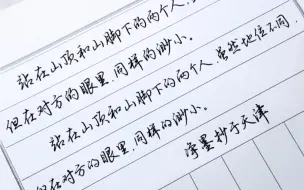 站在山顶和山脚下的两个人,虽
但在对方的眼里,同样的渺小。
站在山顶和山脚下的两个人,虽然地位不同
但在对方的眼里,同样的渺小。
字墨抄于天津